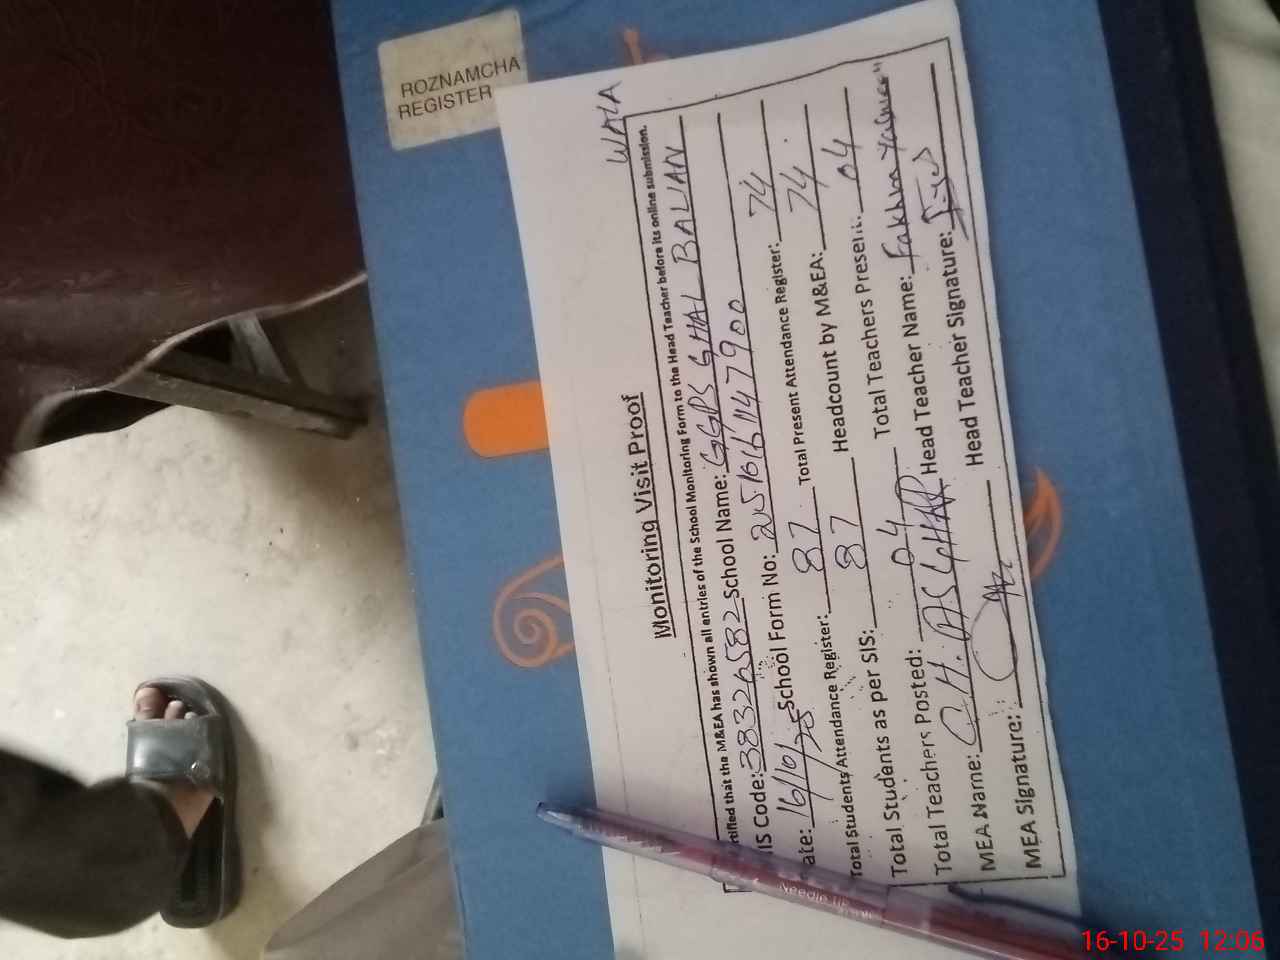 ROZNAMCHA
REGISTER
WALA
Monitoring Visit Proof
rtified that the M&EA has shown all entries of the School Monitoring Form to the Head Teacher before its online submission.
IS Code: 38326582 School Name: GGPS GHAL BALIAN
ate: 16/10/25 School Form No: 2516161147900
Total Students Attendance Register: 87 Total Present Attendance Register: 74
Total Students as per SIS: 87 Headcount by M&EA: 74
Total Teachers Posted: 04 Total Teachers Present: 04
MEA Name: CH. ASGHAR Head Teacher Name: Fakhra Yasmeen
MEA Signature: Head Teacher Signature:
Needle tip
16-10-25 12:06